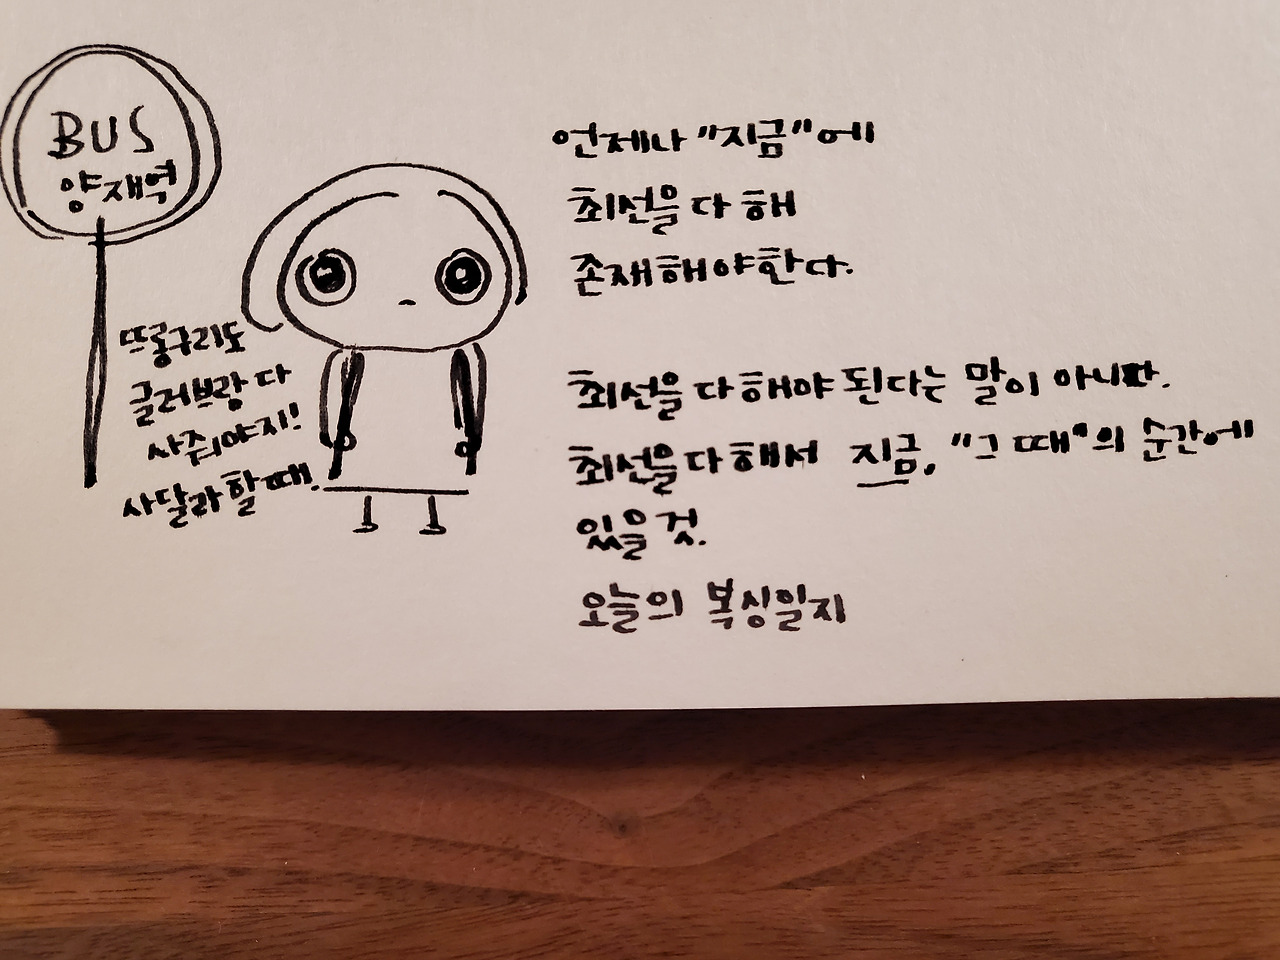 BUS
양재역
뜨롱구리도
글러브랑 다
사줘야지!
사달라 할 때.
언제나 "지금"에
최선을 다 해
존재해야한다.
최선을 다 해야 된다는 말이 아니다.
최선을 다 해서 지금, "그 때"의 순간에
있을 것.
오늘의 복싱일지